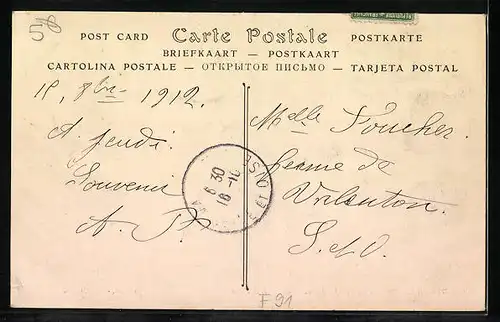 58
POST CARD Carte Postale POSTKARTE
BRIEFKAART — POSTKAART
CARTOLINA POSTALE — ОТКРЫТОЕ ПИСЬМО — TARJETA POSTAL
8bre 1912.
A jeudi.
Souvenir
A. P.
Melle Foucher.
ferme de
Valenton.
S. et O.
6 30
16 - 10
F 91